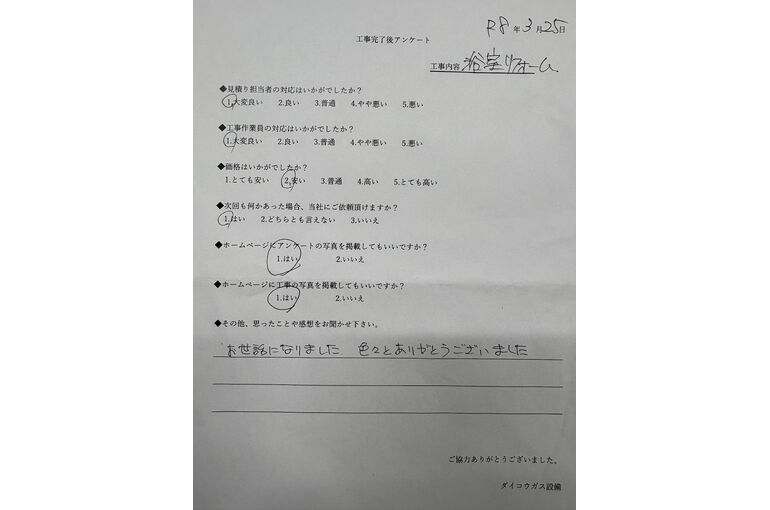 R8年3月25日
工事完了後アンケート
工事内容 浴室リフォーム
◆見積り担当者の対応はいかがでしたか?
1.大変良い 2.良い 3.普通 4.やや悪い 5.悪い
◆工事作業員の対応はいかがでしたか?
1.大変良い 2.良い 3.普通 4.やや悪い 5.悪い
◆価格はいかがでしたか?
1.とても安い 2.安い 3.普通 4.高い 5.とても高い
◆次回も何かあった場合、当社にご依頼頂けますか?
1.はい 2.どちらとも言えない 3.いいえ
◆ホームページにアンケートの写真を掲載してもいいですか?
1.はい 2.いいえ
◆ホームページに工事の写真を掲載してもいいですか?
1.はい 2.いいえ
◆その他、思ったことや感想をお聞かせ下さい。
お世話になりました 色々とありがとうございました
ご協力ありがとうございました。
ダイコウガス設備